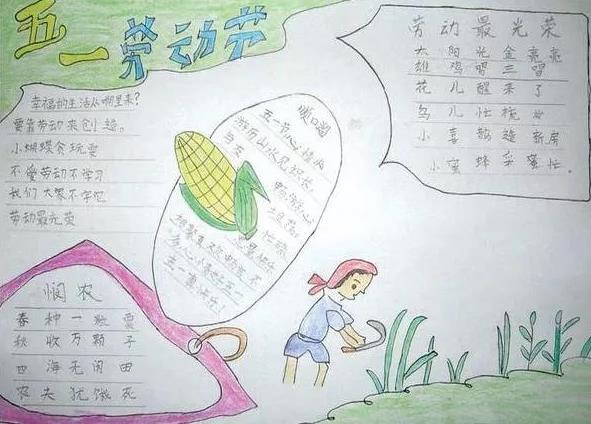 五一劳动节
劳动最光荣
太阳光金亮亮
雄鸡唱三唱
花儿醒来了
鸟儿忙梳妆
小喜鹊造新房
小蜜蜂采蜜忙。
幸福的生活从哪里来?
要靠劳动来创造。
小蝴蝶贪玩耍
不爱劳动不学习
我们大家不学它
劳动最光荣
顺口溜
五一节心情爽
游历山水见识长
悯农
春种一粒粟
秋收万颗子
四海无闲田
农夫犹饿死